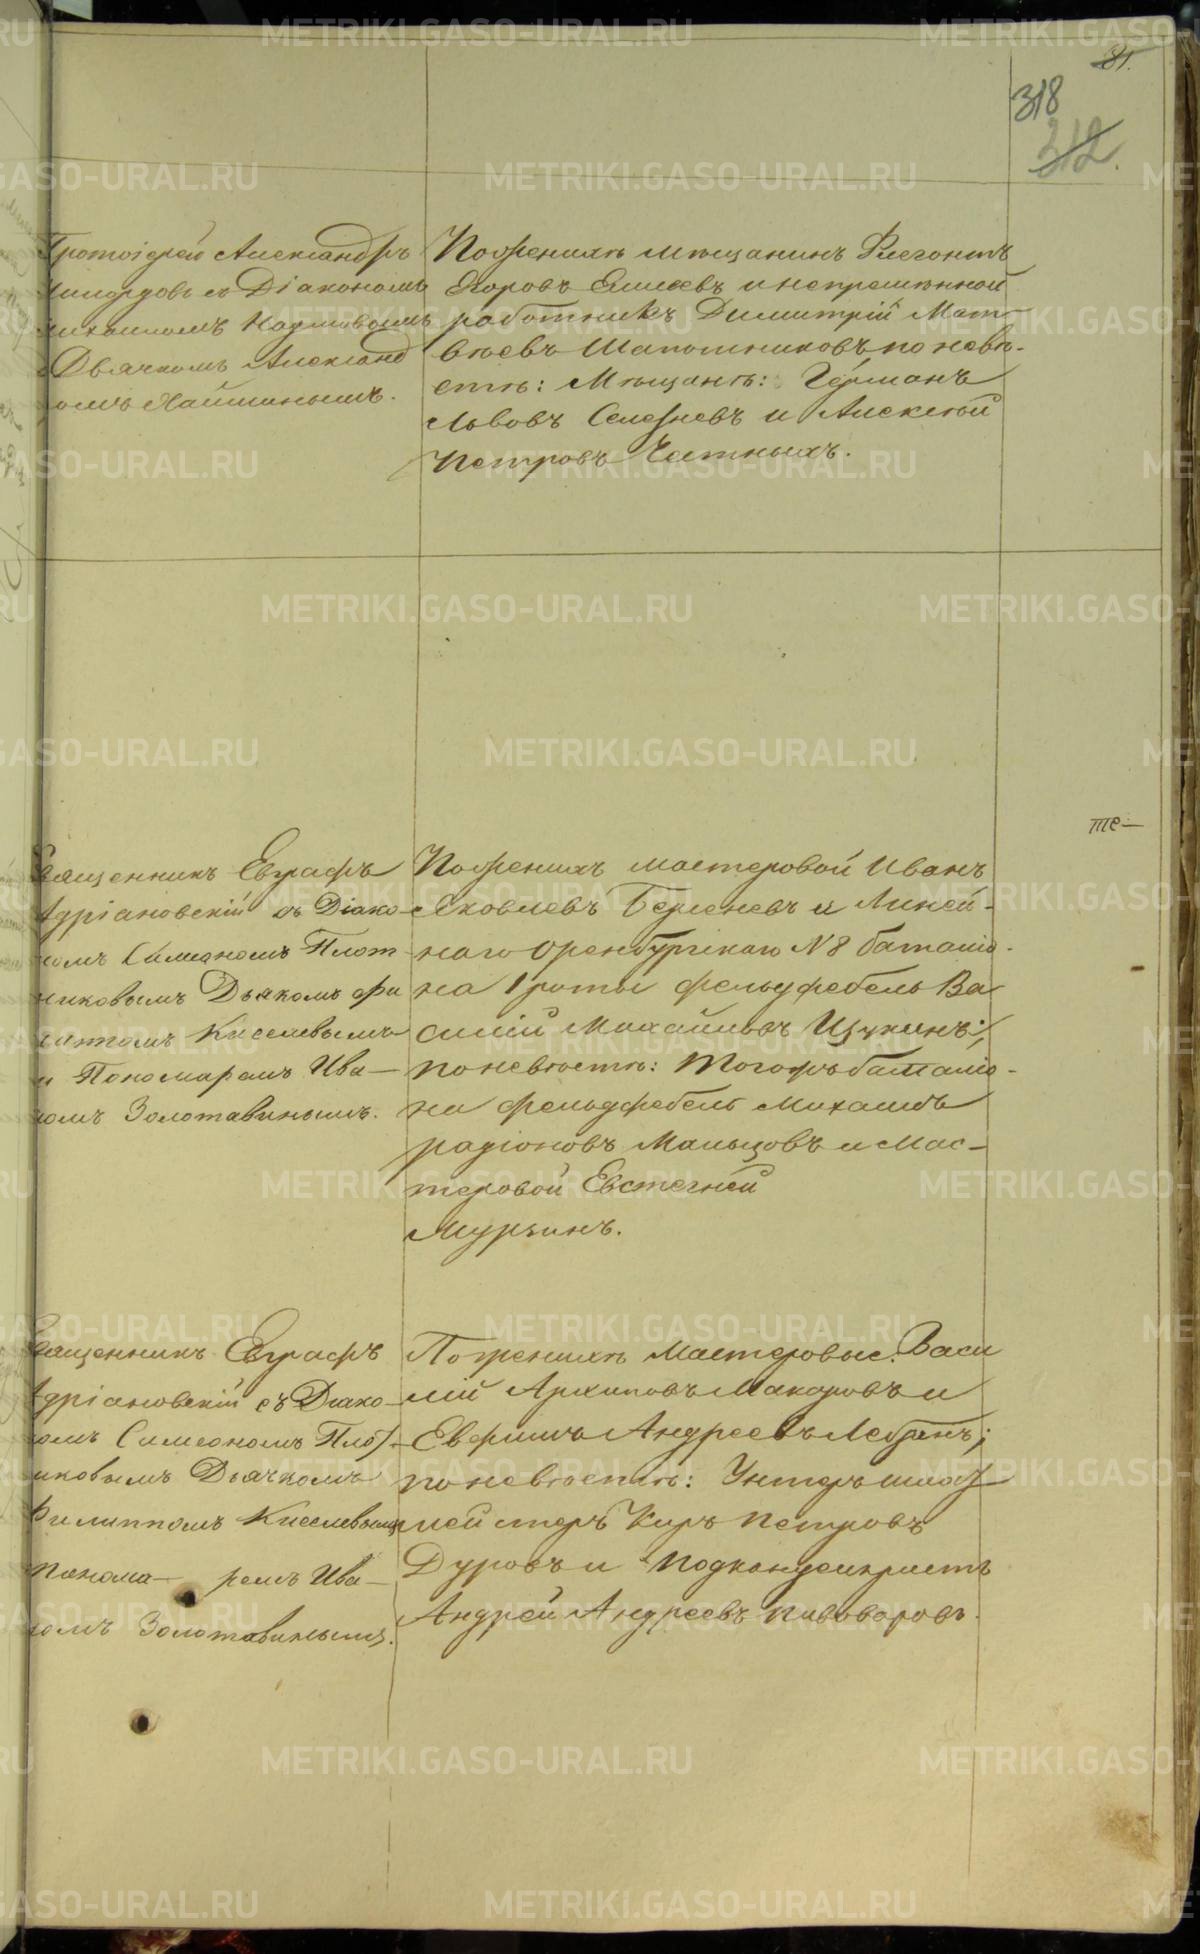 81.
318
312.
Протоіерей Александръ
съ Діакономъ
Дьячкомъ Александ
Поженихѣ мѣщанинъ Флегонтъ
Егоровъ Елисѣевъ и непремѣнной
работникъ Димитрій Мат-
вѣевъ Шапошниковъ, по невѣ-
стѣ: Мѣщанѣ: Германъ
Львовъ Селезневъ и Алексѣй
Петровъ
те—
Священникъ Евграфъ
Адріановскій съ Діако-
номъ Симеономъ Плот
никовымъ Дьякомъ Фи
липпомъ Киселевымъ
и Пономаремъ Ива—
номъ Золотавинымъ.
Поженихѣ мастеровой Иванъ
Яковлевъ Берсеневъ и Линей-
наго Оренбургскаго №8 баталіо-
на 1 роты фельдфебель Ва
силій Михайловъ Щукинъ;
поневѣстѣ: Тогожъ баталіо-
на фельдфебель Михаилъ
радіоновъ Мальцовъ и Мас-
теровой Евстегней
Мурзинъ.
Священникъ Евграфъ
Адріановскій съ Діако-
номъ Симеономъ Плот-
никовымъ Дьячкомъ
Филиппомъ Киселевымъ
понома— ремъ Ива—
номъ Золотавинымъ.
Поженихѣ Мастеровые: Васи
лій Архиповъ Макаровъ и
Евфимъ Андреевъ
поневѣстѣ: Унтеръ шихт
мейстеръ Киръ Петровъ
Дуровъ и Подканцеляристъ
Андрей Андреевъ Пивоваровъ.
METRIKI.GASO-URAL.RU